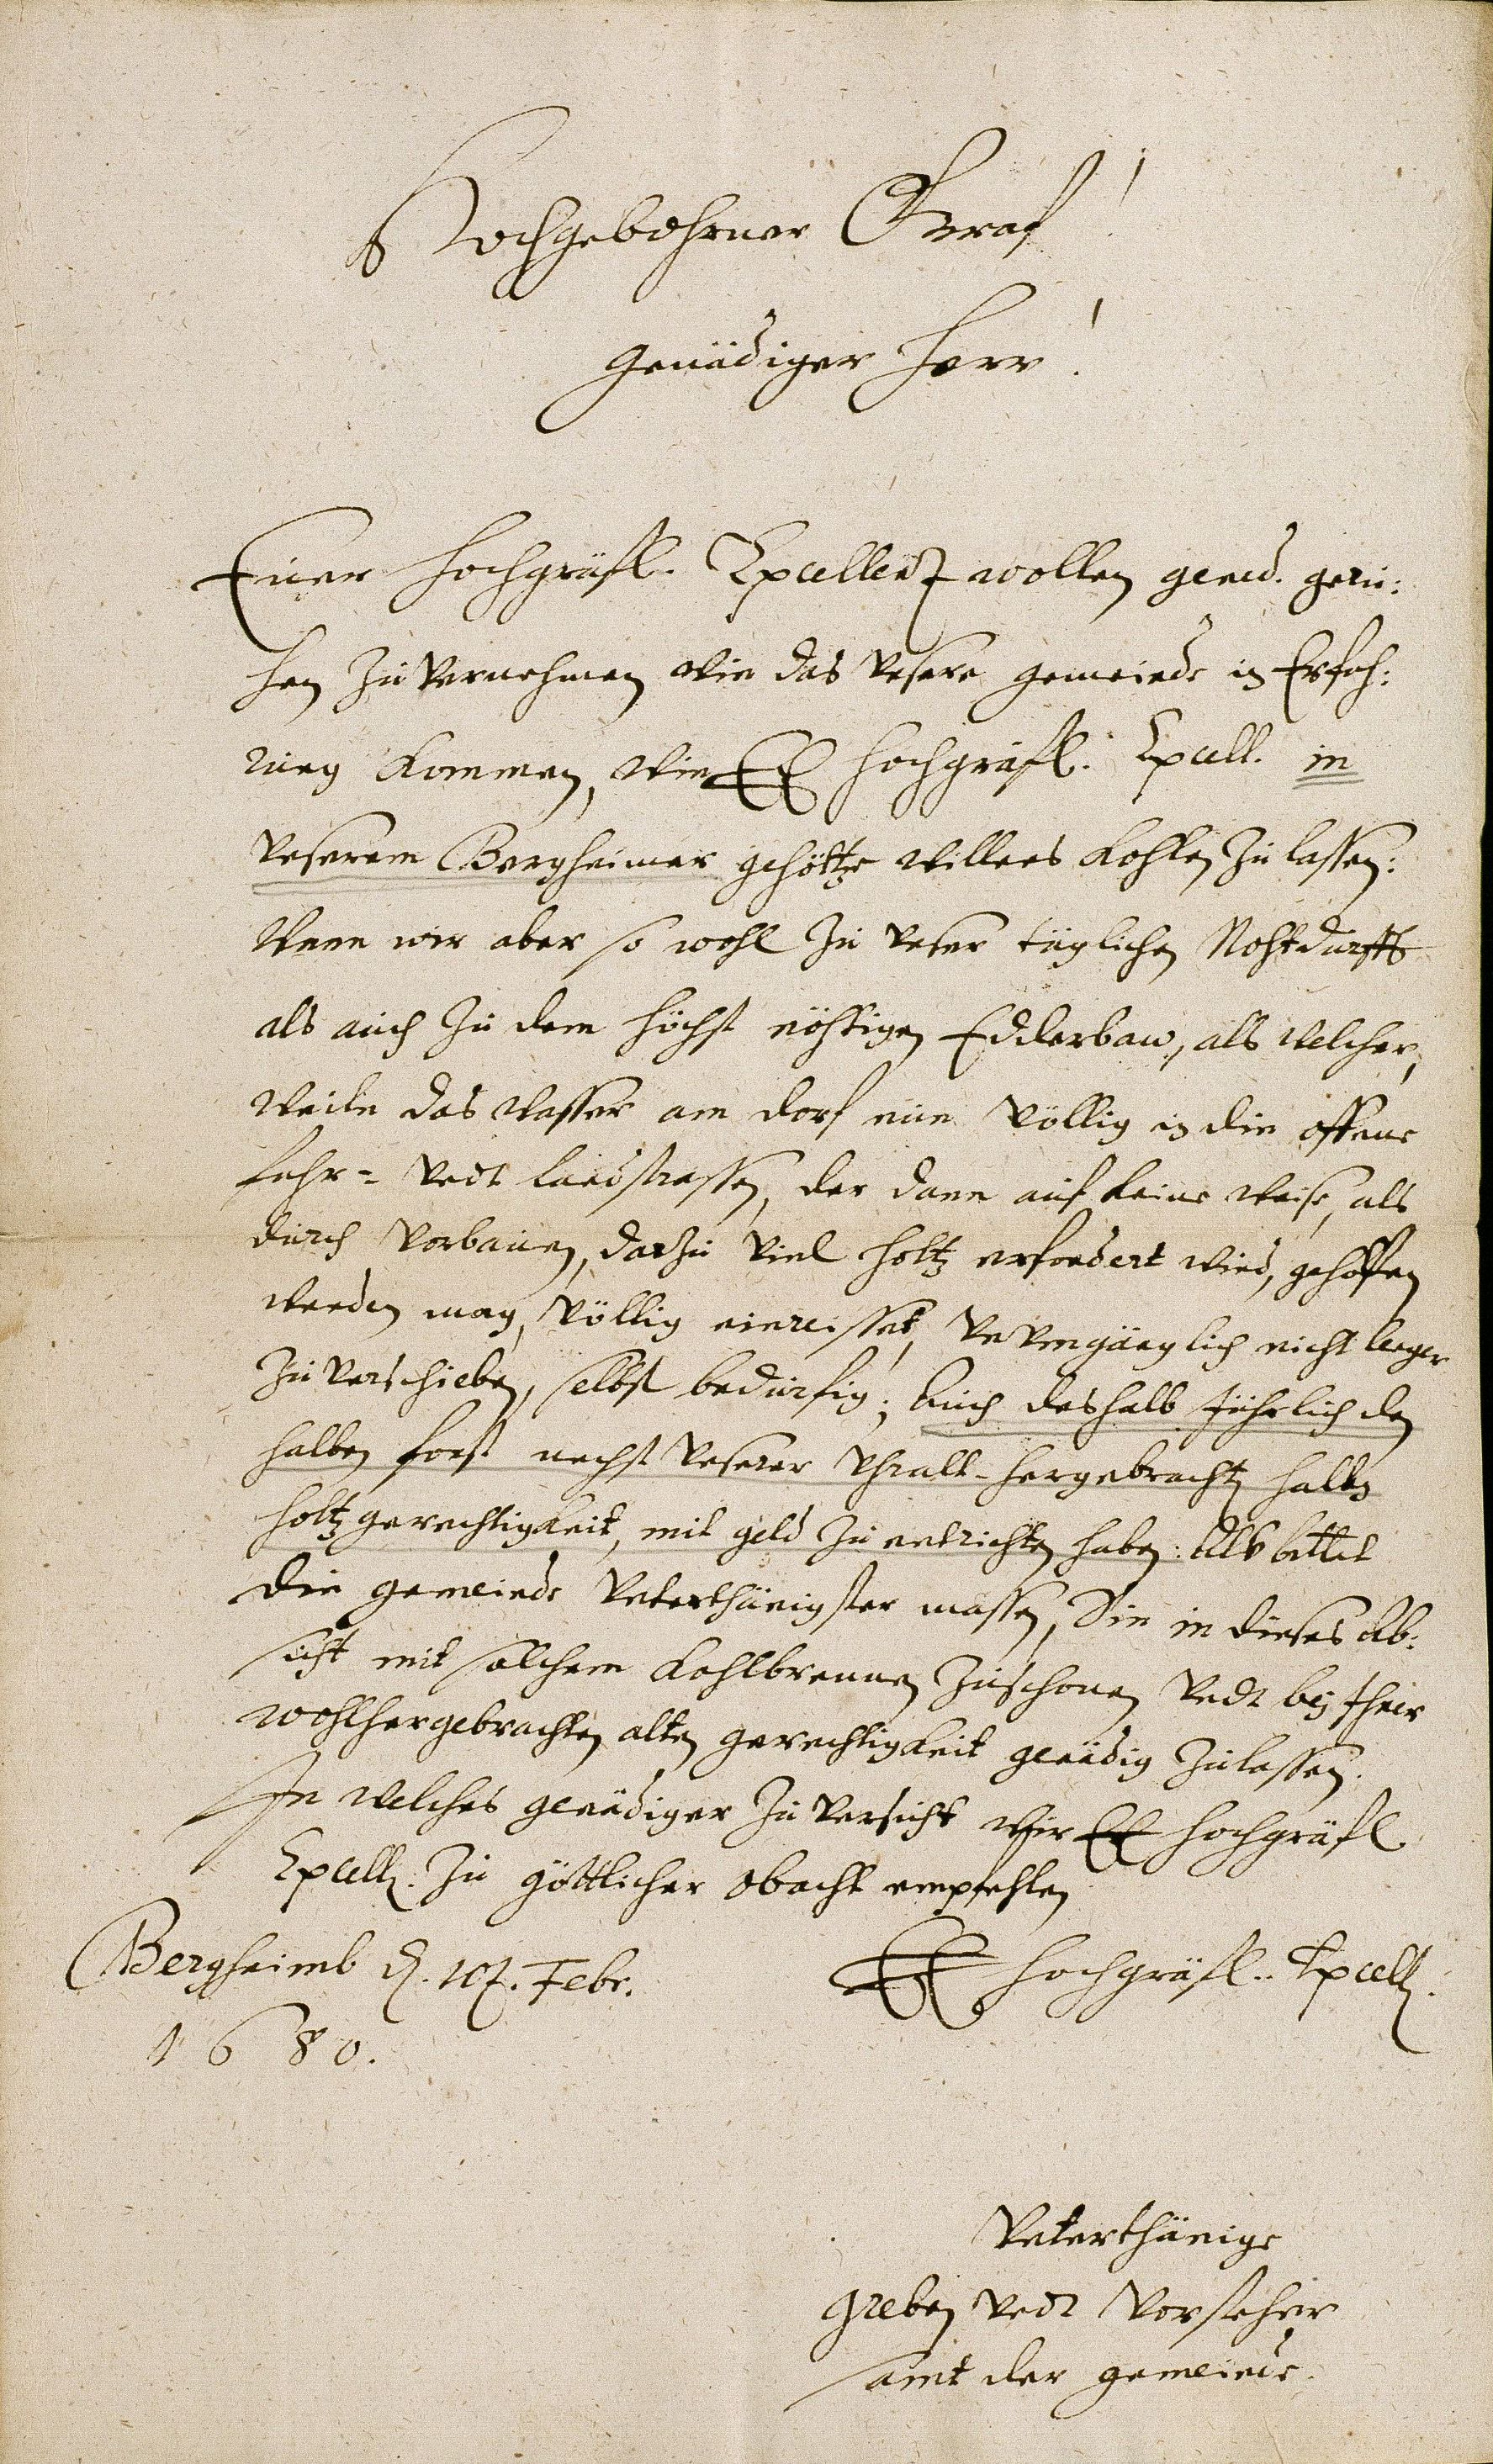 Hochgebohrner Graf!
Genädiger Herr!
Euer Hochgräfl. Excellentz wollen gened. geru:
hen zu vernehmen wie das vnsere gemeinde in Erfah:
rung kommen, wie EE Hochgräfl. Excell. in
vnserem Bergheimer gehöltze willens kohlen zu lassen:
Wenn wir aber so wohl zu vnser täglichen Nohtdurfft
als auch zu dem höchst nöhtigen Edderbaw, als welcher,
weiln das wasser am dorf nun völlig in die offene
fehr= vndt landstrassen, der dann auf keine weise, als
durch vorbauen, darzu viel holtz erfordert wird, geholffen
werden mag, völlig einreisset, vnvmgänglich nicht lenger
zu verschieben, selbst bedürfig; Auch deshalb jährlich den
halben forst nechst vnserer vhralt-hergebrachten halben
holtzgerechtigkeit, mit geld zu entrichten haben: Alß bittet
die gemeinde vnterthänigster massen, Sie in dieses Ab:
sicht mit solchem kohlbrennen zuschonen vndt bey jhrer
wohlhergebrachten alten gerechtigkeit genädig zulassen.
In welches genädiger zuversicht wir EE Hochgräfl.
Excell. zu göttlicher obacht empfehlen
Bergheimb d. 10t. Febr.
1680.
EE Hochgräfl. Excell.
Vnterthänige
Greben vndt Vorsteher
samt der gemeinde.